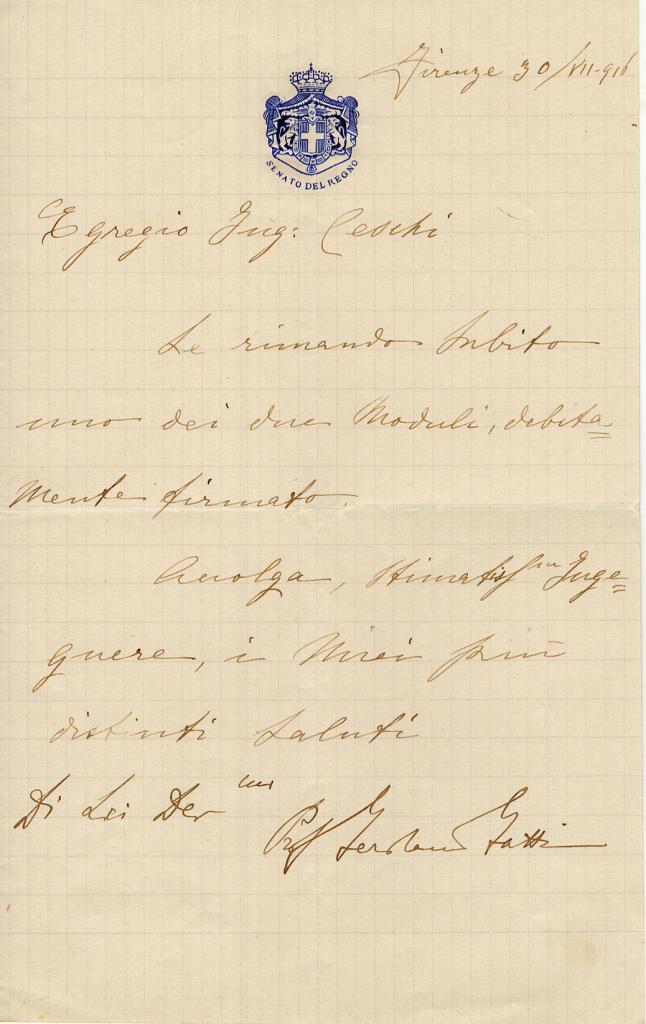 Firenze 30/VII-916
SENATO DEL REGNO
Egregio Ing: Ceschi
Le rimando subito
uno dei due Moduli, debita=
mente firmato.
Accolga, Stimatiss mo Inge=
gnere, i Miei più
distinti saluti
Di Lei Dev mo
Prof Gerolamo Gatti